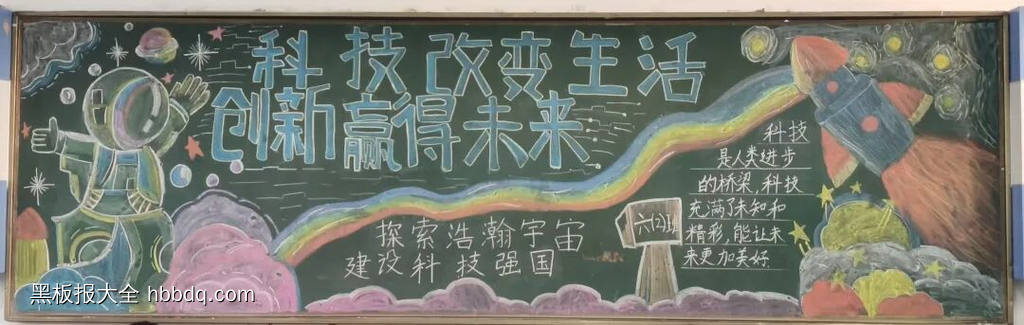 科技改变生活
创新赢得未来
探索浩瀚宇宙
建设科技强国
六(2)班
科技
是人类进步
的桥梁,科技
充满了未知和
精彩,能让未
来更加美好.
黑板报大全 hbbdq.com